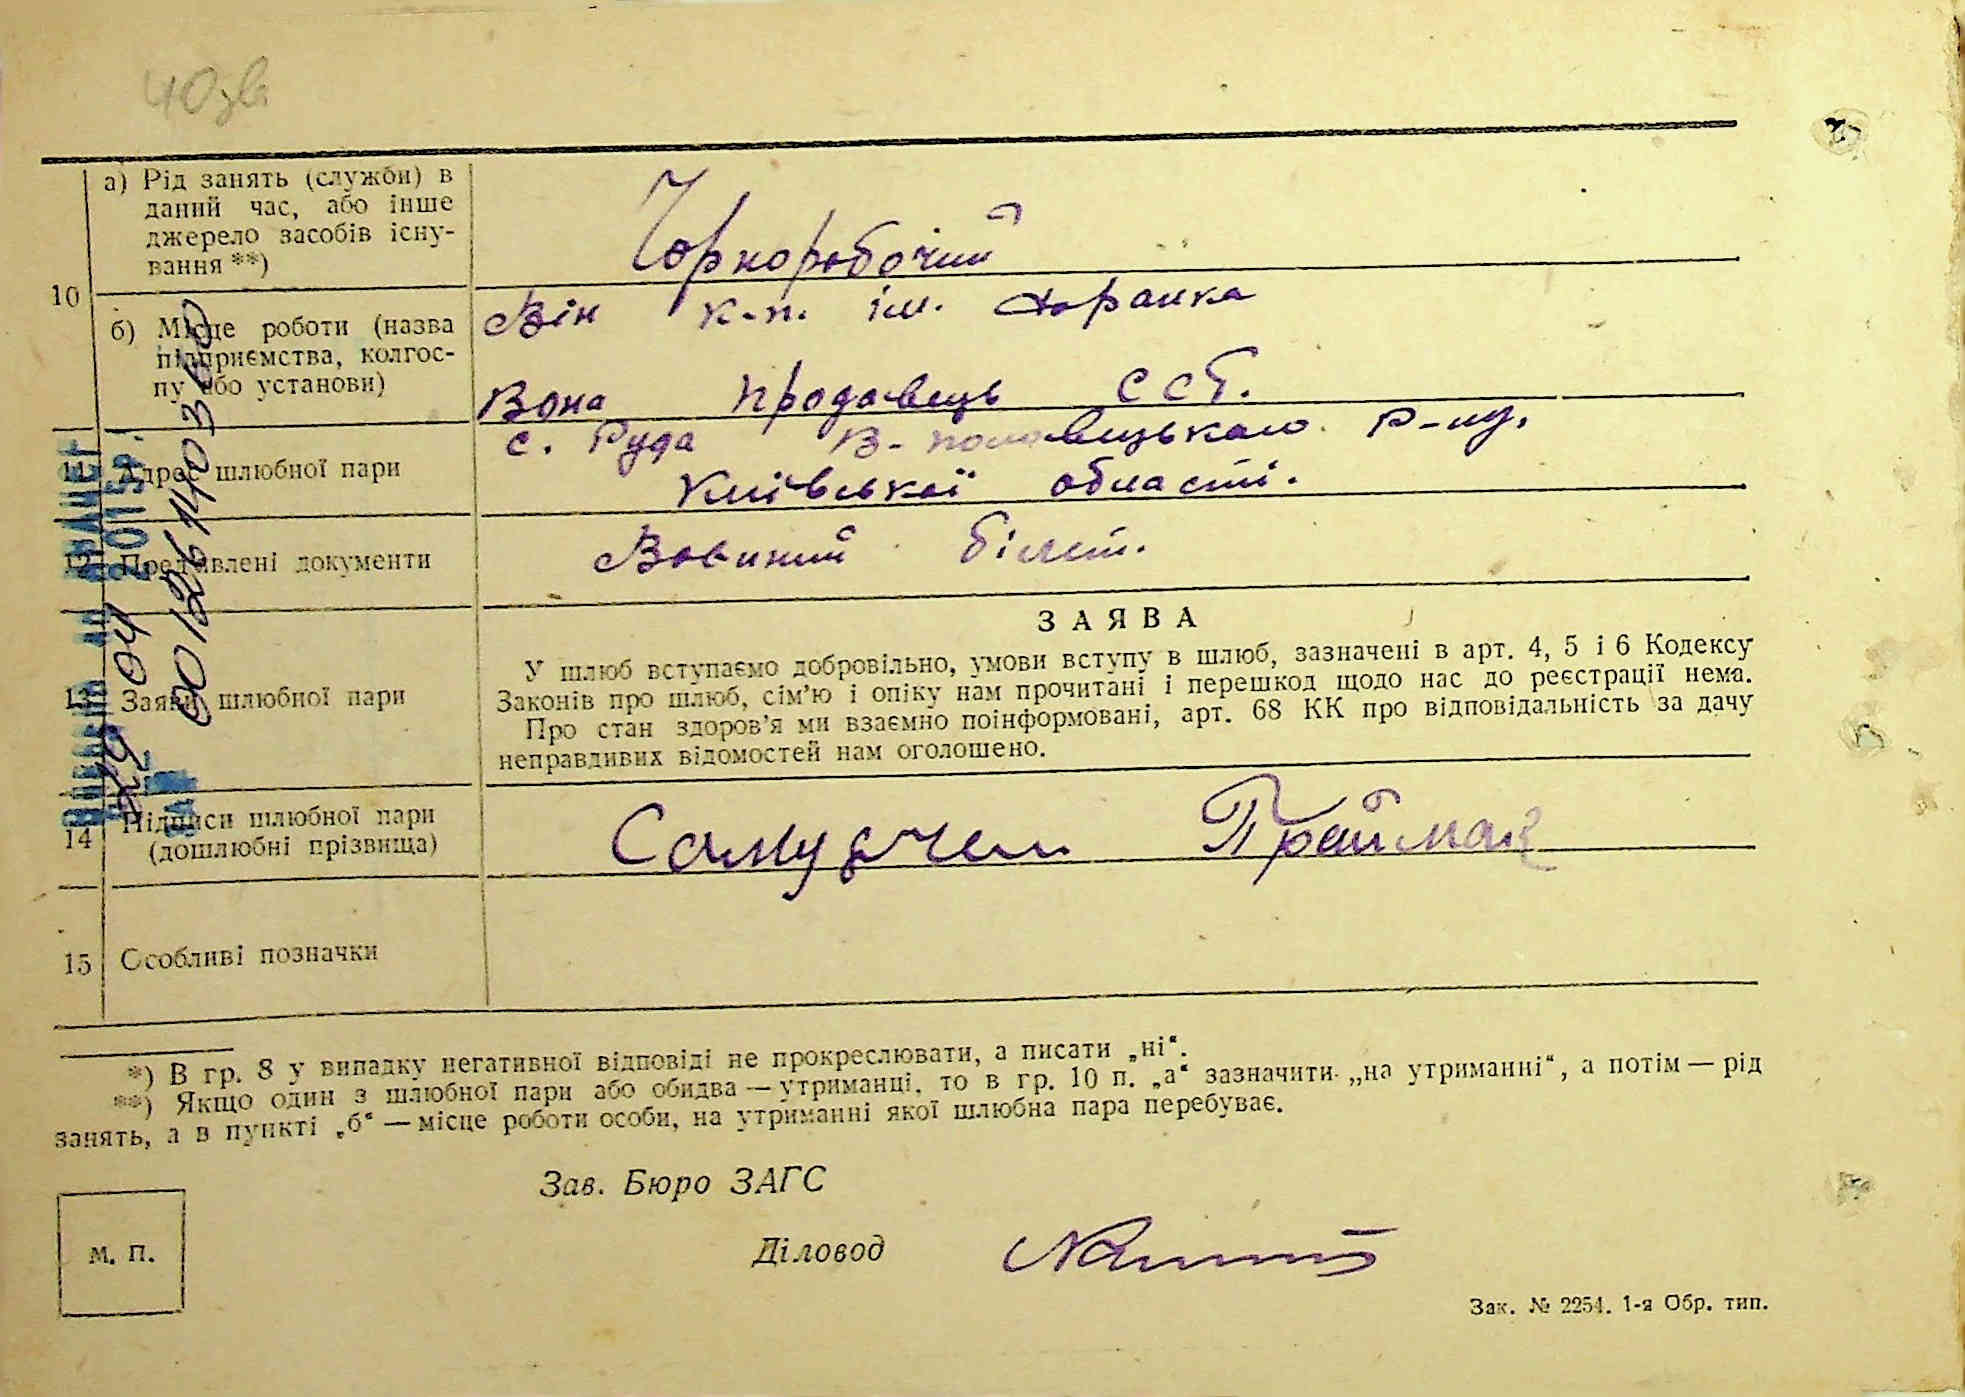 40 зв
а) Рід занять (служби) в
даний час, або інше
джерело засобів існу-
вання **)
Чорноробочий
10
б) Місце роботи (назва
підприємства, колгос-
пу або установи)
Він к-п. ім. Франка
Вона продавець ССТ.
11 Адрес шлюбної пари
с. Руда В-половецького Р-ну.
Київської області.
12 Пред'явлені документи
Воєнний білет.
13 Заява шлюбної пари
ЗАЯВА
У шлюб вступаємо добровільно, умови вступу в шлюб, зазначені в арт. 4, 5 і 6 Кодексу
Законів про шлюб, сім'ю і опіку нам прочитані і перешкод щодо нас до реєстрації нема.
Про стан здоров'я ми взаємно поінформовані, арт. 68 КК про відповідальність за дачу
неправдивих відомостей нам оголошено.
14 Підписи шлюбної пари
(дошлюбні прізвища)
Приймак
15 Особливі позначки
*) В гр. 8 у випадку негативної відповіді не прокреслювати, а писати „ні“.
**) Якщо один з шлюбної пари або обидва — утриманці, то в гр. 10 п. „а“ зазначити „на утриманні“, а потім — рід
занять, а в пункті „б“ — місце роботи особи, на утриманні якої шлюбна пара перебуває.
Зав. Бюро ЗАГС
М. П.
Діловод
Зак. № 2254. 1-я Обр. тип.
29 04 2015р.
00126140360